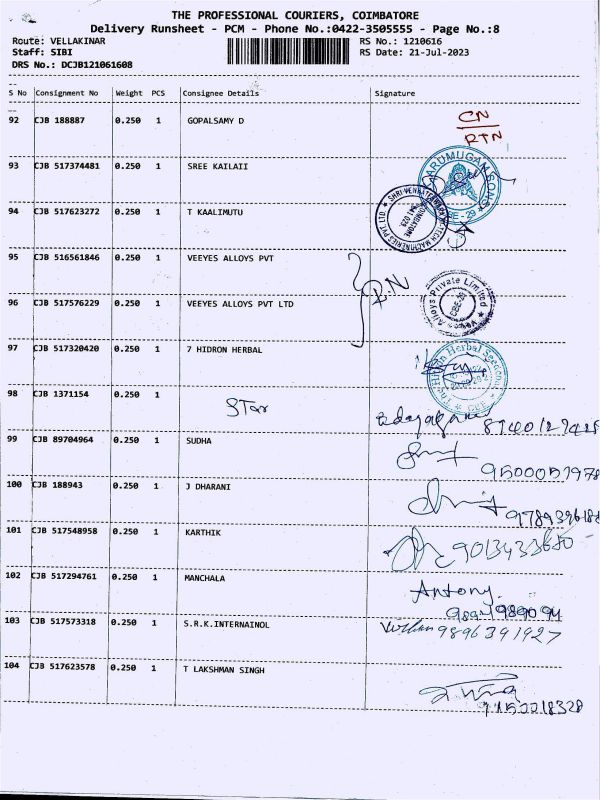 THE PROFESSIONAL COURIERS, COIMBATORE
Delivery Runsheet - PCM - Phone No.:0422-3505555 - Page No.:8
Route: VELLAKINAR RS No.: 1210616
Staff: SIBI RS Date: 21-Jul-2023
DRS No.: DCJB121061608
S No Consignment No Weight PCS Consignee Details Signature
92 CJB 188887 0.250 1 GOPALSAMY D CN
RTN
93 CJB 517374481 0.250 1 SREE KAILAII ARUMUGAM SONS
94 CJB 517623272 0.250 1 T KAALIMUTU
95 CJB 516561846 0.250 1 VEEYES ALLOYS PVT
96 CJB 517576229 0.250 1 VEEYES ALLOYS PVT LTD Alloys Private Limited
97 CJB 517320420 0.250 1 7 HIDRON HERBAL
98 CJB 1371154 0.250 1 Star
99 CJB 89704964 0.250 1 SUDHA
100 CJB 188943 0.250 1 J DHARANI
101 CJB 517548958 0.250 1 KARTHIK
102 CJB 517294761 0.250 1 MANCHALA Antony
103 CJB 517573318 0.250 1 S.R.K.INTERNAINOL 9896391927
104 CJB 517623578 0.250 1 T LAKSHMAN SINGH